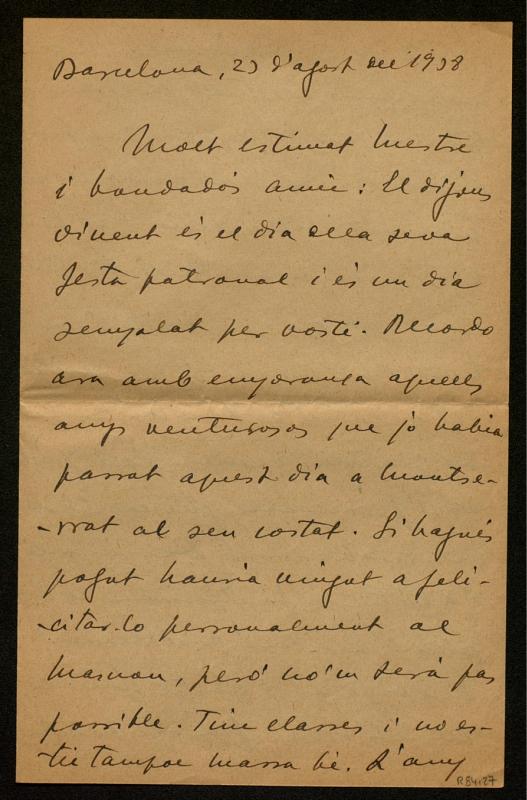 Barcelona, 23 d'agost del 1938
Molt estimat Mestre
i bondadós amic: El dijous
vinent és el dia de la seva
festa patronal i és un dia
senyalat per vostè. Recordo
ara amb enyorança aquells
anys venturosos que jo había
passat aquest dia a Montse-
-rrat al seu costat. Si hagués
pogut hauria vingut a feli-
-citar-lo personalment al
Masnou, però no'm serà pas
possible. Tinc classes i no es-
-tic tampoc massa bé. L'any
R84.27